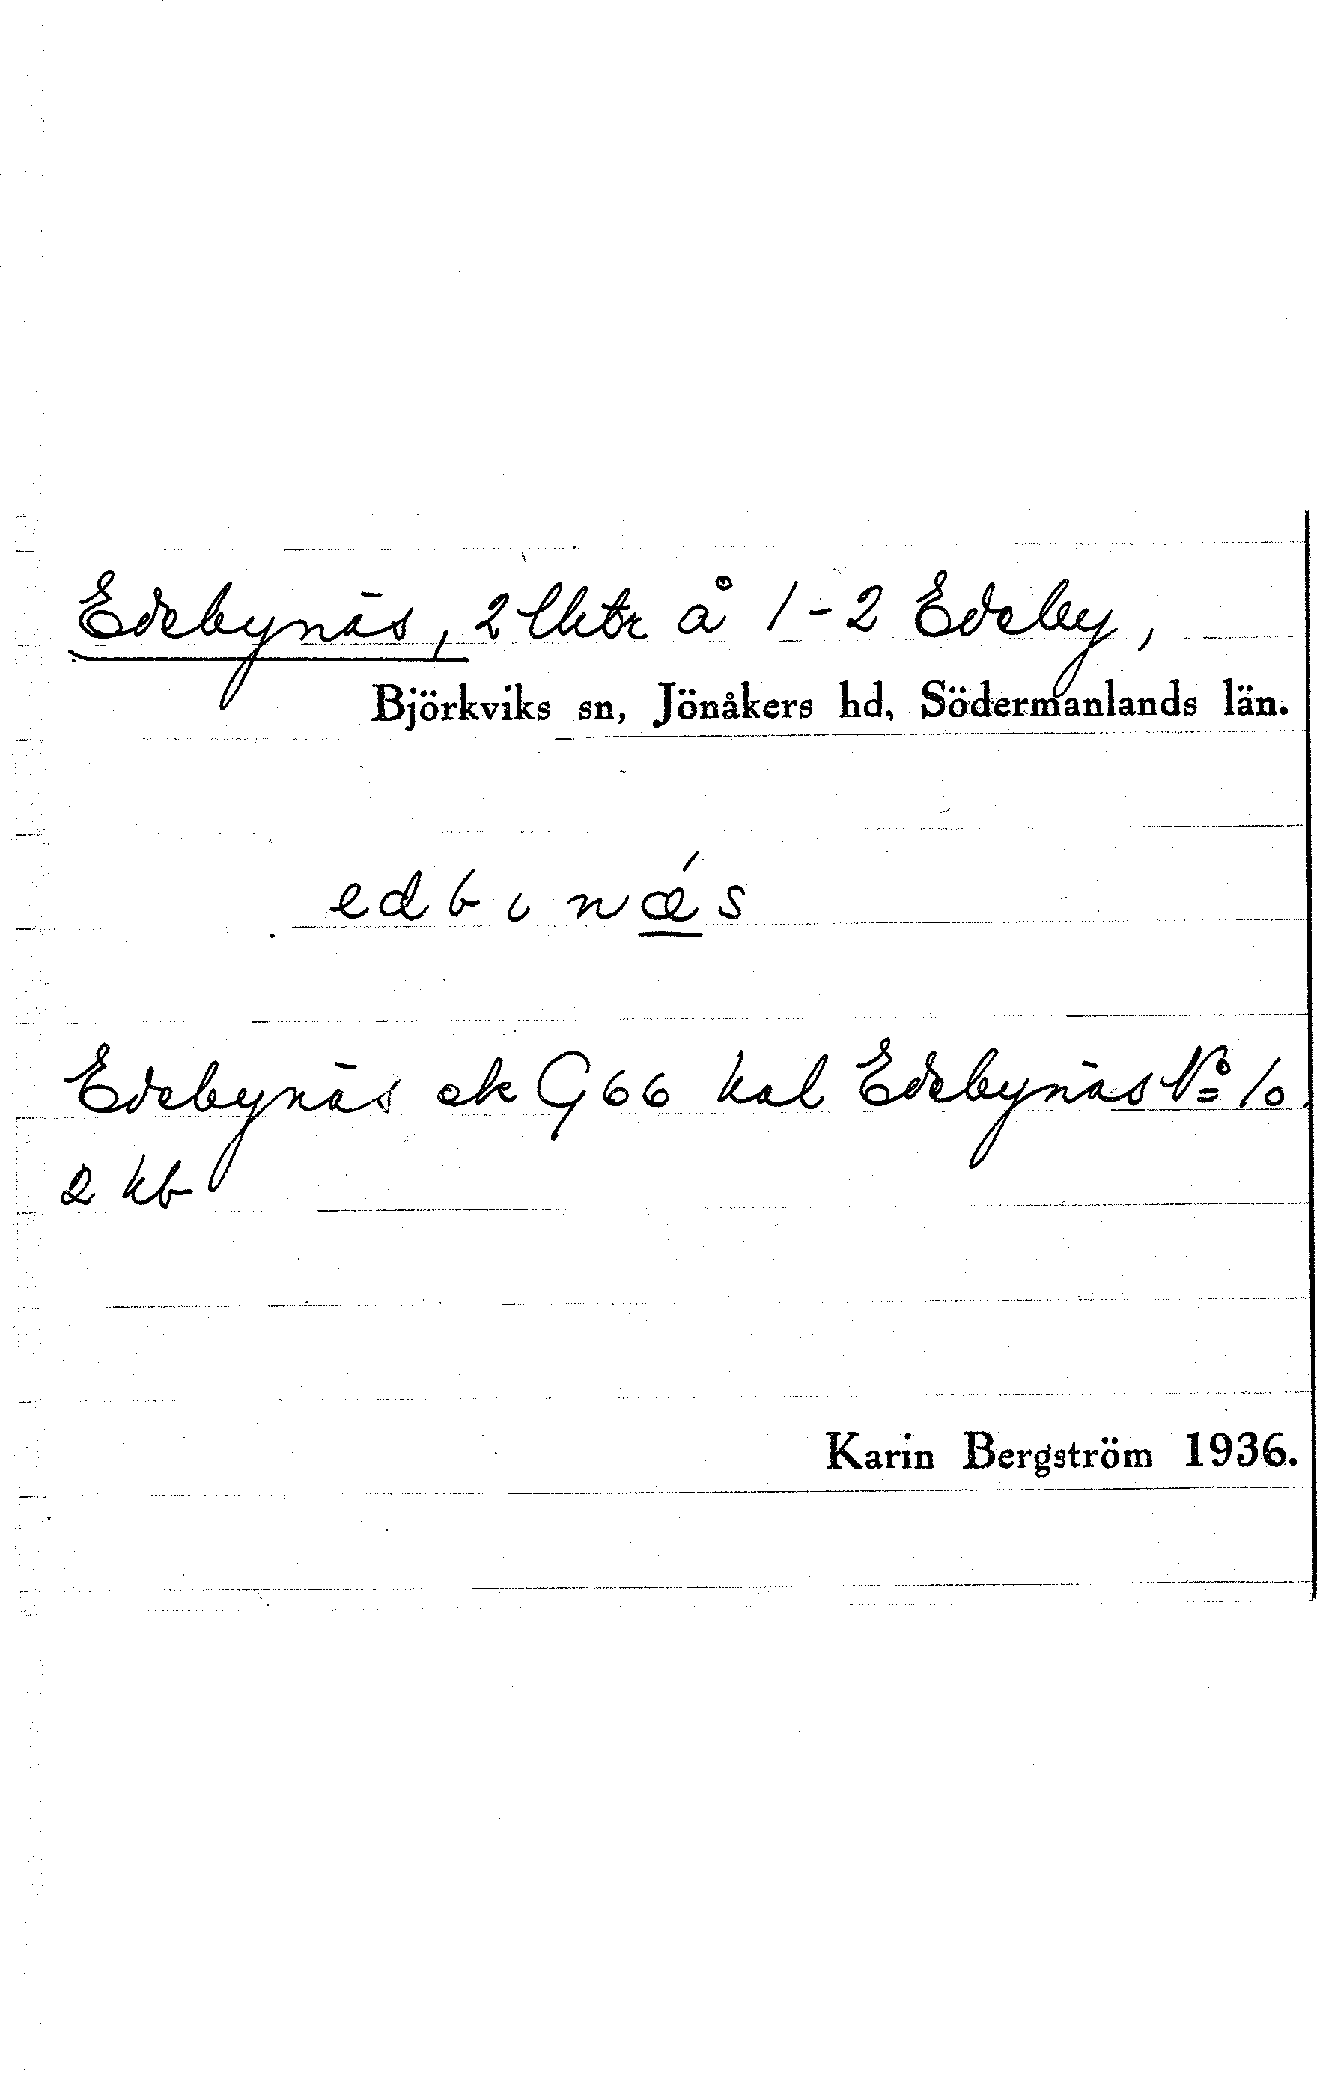 Edebynäs, 2 lhtr å 1-2 Edeby,
Björkviks sn, Jönåkers hd, Södermanlands län.
edbınǽs
Edebynäs ek G66 kal Edebynäs Nº 10.
2 kb
Karin Bergström 1936.